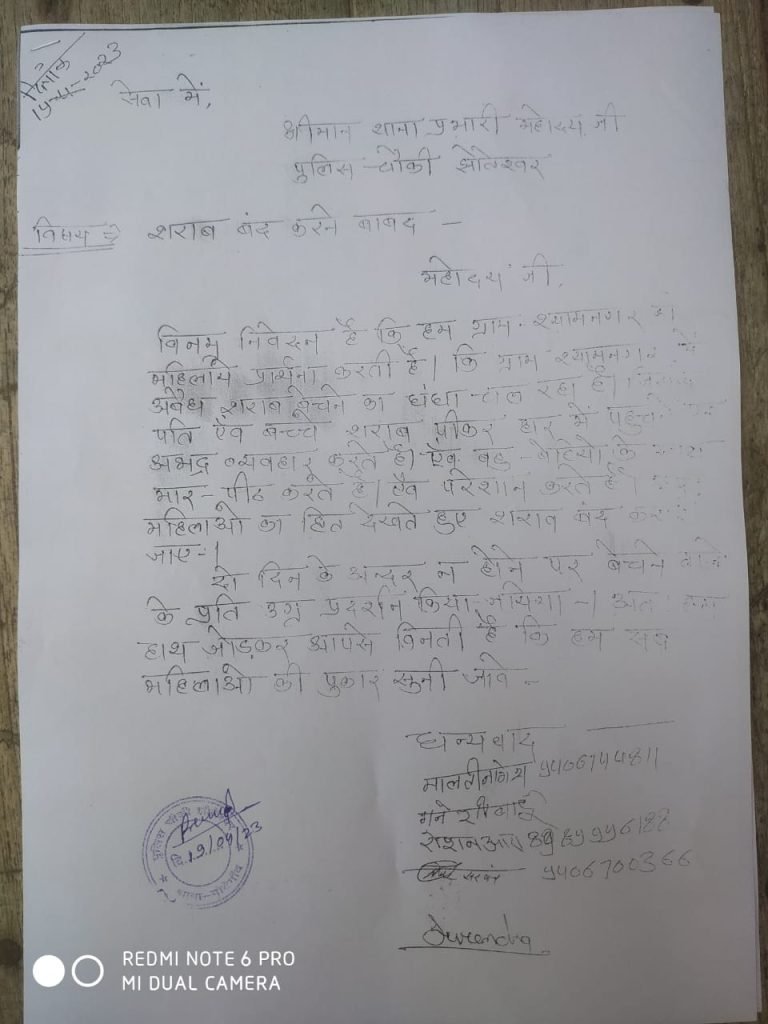 दिनांक
19-4-2023
सेवा में,
श्रीमान थाना प्रभारी महोदय जी
पुलिस-चौकी झोतेश्वर
विषय ⇒ शराब बंद करने बाबद -
महोदय जी,
विनम्र निवेदन है कि हम ग्राम-श्यामनगर
महिलाये प्रार्थना करती है। कि ग्राम श्यामनगर
अवैध शराब बेचने का धंधा चल रहा है।
पति ऐंव बच्चे शराब पीकर
अभद्र व्यवहार करते है। ऐंव बहु-बेटियो के
मार-पीट करते है। ऐंव परेशान करते है।
महिलाओ का हित देखते हुए शराब बंद
जाए-।
दो दिन के अन्दर न होने पर बेचने वाले
के प्रति उग्र प्रदर्शन किया
हाथ जोड़कर आपसे विनती है कि हम सब
महिलाओ की पुकार सुनी जावे -
धन्यवाद
9406744811
9406700366
Surendra
पुलिस चौकी
दि. 19/04/23
थाना-
REDMI NOTE 6 PRO
MI DUAL CAMERA